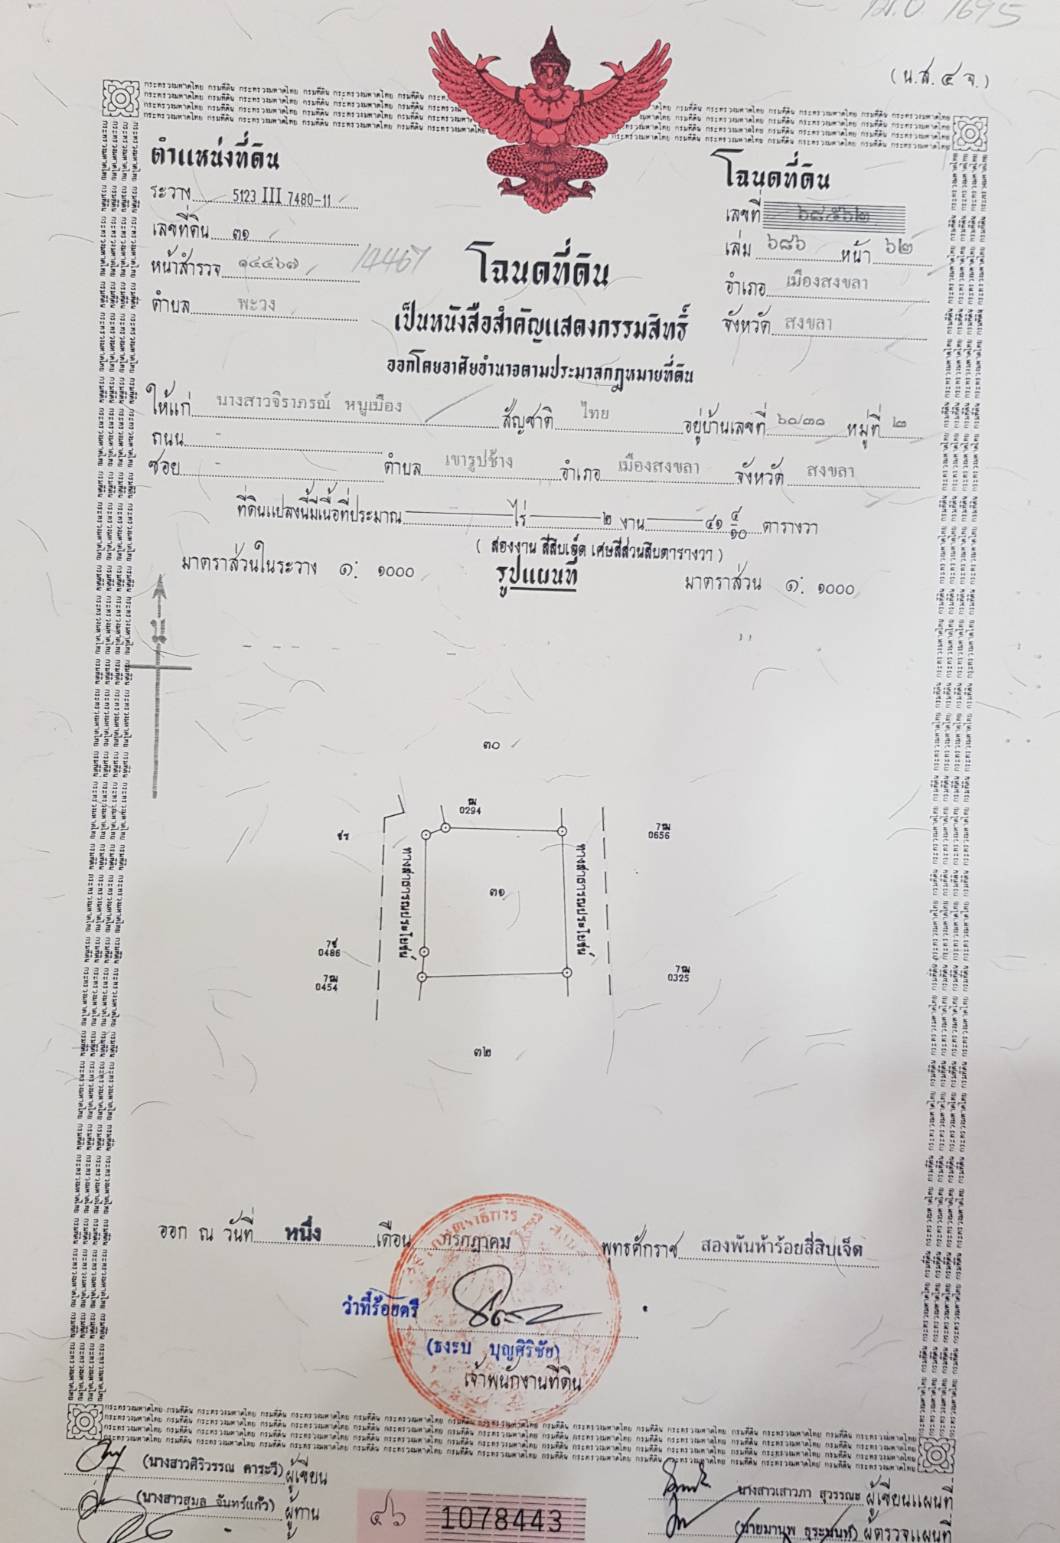 (น.ส. ๔ จ.)
ตำแหน่งที่ดิน
ระวาง 5123 III 7480-11
เลขที่ดิน ๓๑
หน้าสำรวจ ๑๔๔๖๗ 14467
ตำบล พะวง
โฉนดที่ดิน
เลขที่
เล่ม ๖๘๖ หน้า ๖๒
อำเภอ เมืองสงขลา
จังหวัด สงขลา
โฉนดที่ดิน
เป็นหนังสือสำคัญแสดงกรรมสิทธิ์
ออกโดยอาศัยอำนาจตามประมวลกฎหมายที่ดิน
ให้แก่ นางสาวจิราภรณ์ หนูเมือง สัญชาติ ไทย อยู่บ้านเลขที่ ๖๐/๓๑ หมู่ที่ ๒
ถนน -
ซอย - ตำบล เขารูปช้าง อำเภอ เมืองสงขลา จังหวัด สงขลา
ที่ดินแปลงนี้มีเนื้อที่ประมาณ ไร่ ๒ งาน ๔๑ ๔/๑๐ ตารางวา
(สองงาน สี่สิบเอ็ด เศษสี่ส่วนสิบตารางวา)
มาตราส่วนในระวาง ๑: ๑๐๐๐ รูปแผนที่ มาตราส่วน ๑: ๑๐๐๐
๓๐
0294
0656
ทางสาธารณประโยชน์
๓๑
ทางสาธารณประโยชน์
0486
0454
0325
๓๒
ออก ณ วันที่ หนึ่ง เดือน กรกฎาคม พุทธศักราช สองพันห้าร้อยสี่สิบเจ็ด
ว่าที่ร้อยตรี
(ธงรบ บุญศิริชัย)
เจ้าพนักงานที่ดิน
(นางสาวศิริวรรณ คาระวี) ผู้เขียน
(นางสาวสุมล จันทร์แก้ว) ผู้ทาน
๔๖ 1078443
นางสาวเสาวภา สุวรรณะ ผู้เขียนแผนที่
(นายมานพ ธุระพันท์) ผู้ตรวจแผนที่